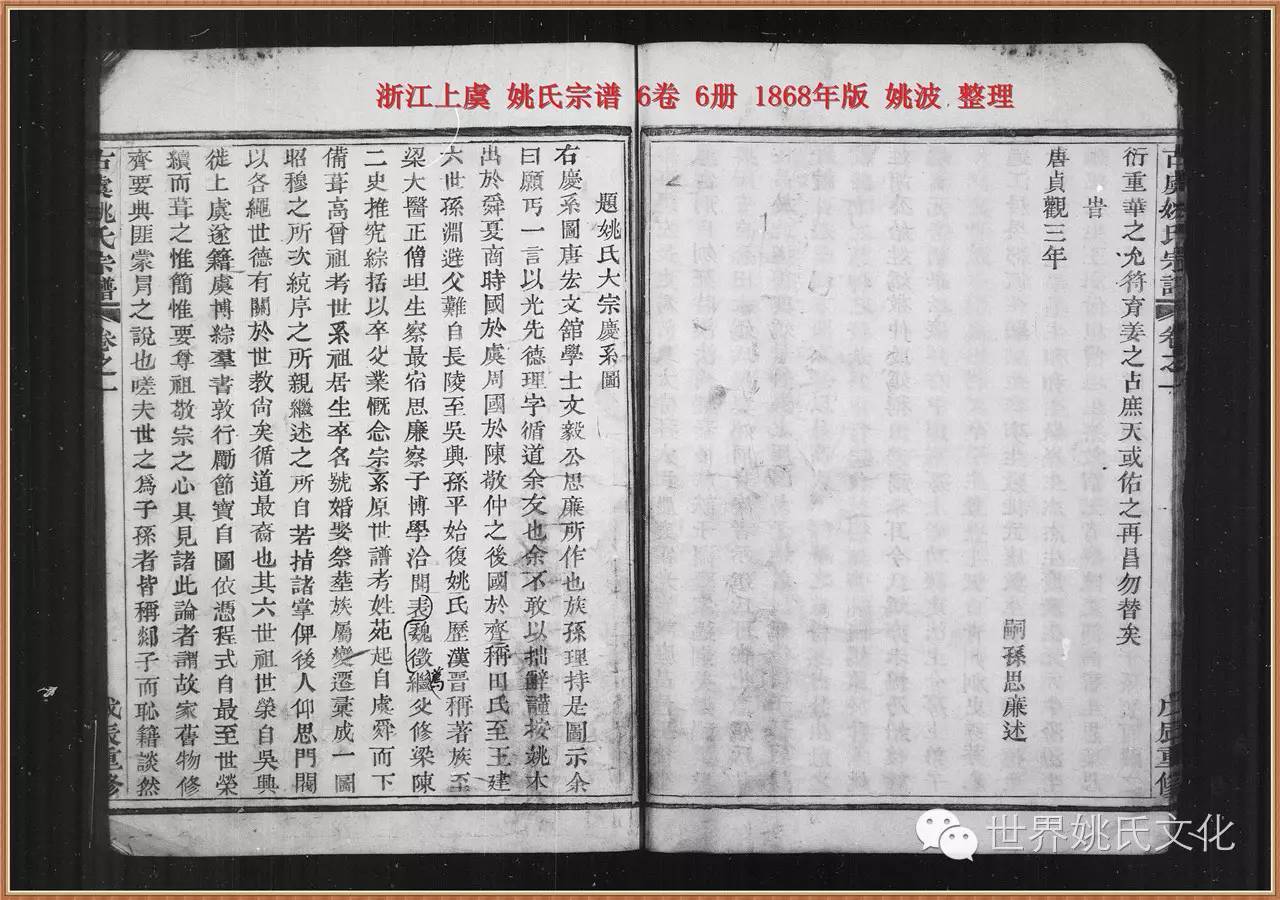 浙江上虞 姚氏宗谱 6卷 6册 1868年版 姚波 整理
古虞姚氏宗譜 卷之一
戊辰重修
衍重華之允符育姜之占庶天或佑之再昌勿替矣
旹
唐貞觀三年
嗣孫思廉述
題姚氏大宗慶系圖
右慶系圖唐宏文舘學士文毅公思廉所作也族孫理持是圖示余
曰願丐一言以光先德理字循道余友也余不敢以拙辭謹按姚本
出於舜夏商時國於虞周國於陳敬仲之後國於齊稱田氏至王建
六世孫淵避父難自長陵至吳興孫平始復姚氏歷漢晉稱著族至
梁大醫正僧坦生察最宿思廉察子博學洽聞表魏徵繼父修梁陳
薦
二史推究綜括以卒父業慨念宗系原世譜考姓苑起自虞舜而下
備葺高曾祖考世系祖居生卒名號婚娶祭塟族屬變遷彙成一圖
昭穆之所次統序之所親繼述之所自若指諸掌俾後人仰思門閥
以各繩世德有關於世教尙矣循道最裔也其六世祖世榮自吳興
徙上虞遂籍虞博綜羣書敦行勵節寶自圖依憑程式自最至世榮
續而葺之惟簡惟要尊祖敬宗之心具見諸此論者謂故家舊物修
齊要典匪蒙冐之說也嗟夫世之爲子孫者皆稱郯子而恥籍談然
古虞姚氏宗譜 卷之一
戊辰重修
世界姚氏文化